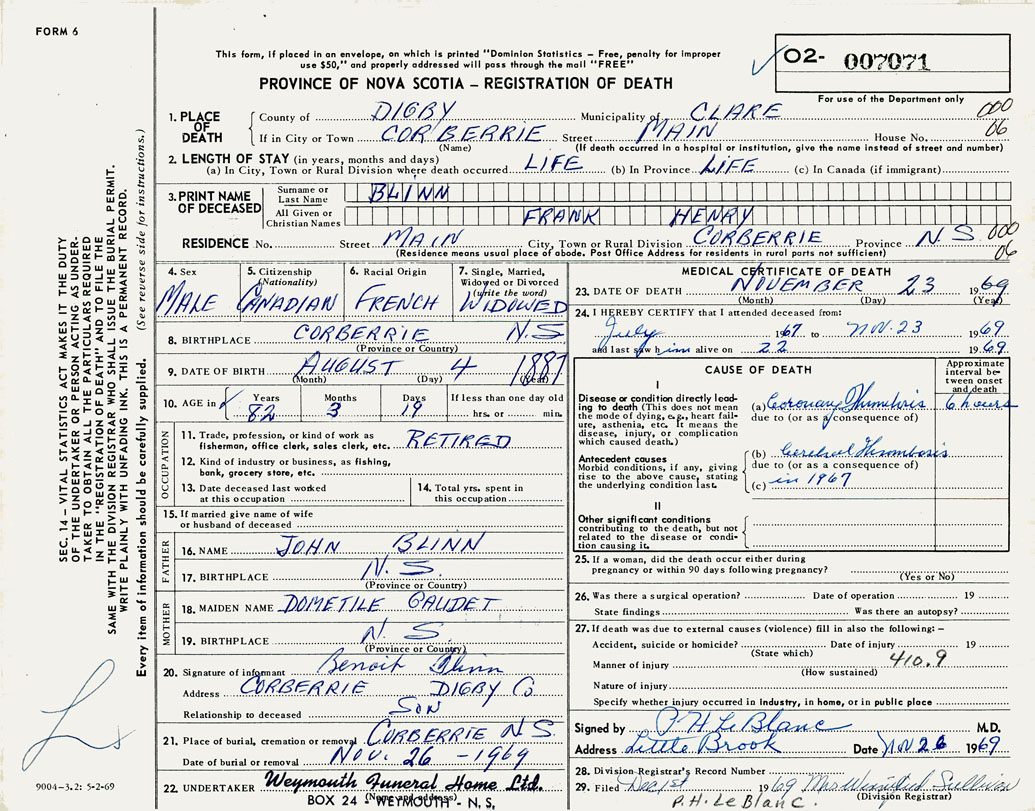 FORM 6
This form, if placed in an envelope, on which is printed "Dominion Statistics – Free, penalty for improper
use $50," and properly addressed will pass through the mail "FREE"
PROVINCE OF NOVA SCOTIA – REGISTRATION OF DEATH
02- 007071
For use of the Department only
SEC. 14 – VITAL STATISTICS ACT MAKES IT THE DUTY
OF THE UNDERTAKER OR PERSON ACTING AS UNDER-
TAKER TO OBTAIN ALL THE PARTICULARS REQUIRED
IN THE "REGISTRATION OF DEATH" AND TO FILE THE
SAME WITH THE DIVISION REGISTRAR WHO SHALL ISSUE THE BURIAL PERMIT.
WRITE PLAINLY WITH UNFADING INK. THIS IS A PERMANENT RECORD.
Every item of information should be carefully supplied. (See reverse side for instructions.)
1. PLACE OF DEATH
County of DIGBY Municipality of CLARE 000
If in City or Town CORBERRIE Street MAIN House No. 06
(Name) (If death occurred in a hospital or institution, give the name instead of street and number)
2. LENGTH OF STAY (in years, months and days)
(a) In City, Town or Rural Division where death occurred LIFE (b) In Province LIFE (c) In Canada (if immigrant)
3. PRINT NAME OF DECEASED
Surname or Last Name BLINN
All Given or Christian Names FRANK HENRY
RESIDENCE No. Street MAIN City, Town or Rural Division CORBERRIE Province N.S. 000
(Residence means usual place of abode. Post Office Address for residents in rural parts not sufficient) 06
4. Sex MALE
5. Citizenship (Nationality) CANADIAN
6. Racial Origin FRENCH
7. Single, Married, Widowed or Divorced (write the word) WIDOWED
8. BIRTHPLACE CORBERRIE N.S
(Province or Country)
9. DATE OF BIRTH AUGUST 4 1887
(Month) (Day) (Year)
10. AGE in Years 82 Months 3 Days 19 If less than one day old
hrs. or min.
OCCUPATION
11. Trade, profession, or kind of work as
fisherman, office clerk, sales clerk, etc. RETIRED
12. Kind of industry or business, as fishing,
bank, grocery store, etc.
13. Date deceased last worked
at this occupation
14. Total yrs. spent in
this occupation
15. If married give name of wife
or husband of deceased
FATHER
16. NAME JOHN BLINN
17. BIRTHPLACE N.S.
(Province or Country)
MOTHER
18. MAIDEN NAME DOMETILE GAUDET
19. BIRTHPLACE N.S.
(Province or Country)
20. Signature of informant Benoit Blinn
Address CORBERRIE DIGBY Co
Relationship to deceased SON
21. Place of burial, cremation or removal CORBERRIE N S.
Date of burial or removal Nov. 26 - 1969
22. UNDERTAKER Weymouth Funeral Home Ltd.
BOX 24 WEYMOUTH - N, S,
MEDICAL CERTIFICATE OF DEATH
23. DATE OF DEATH NOVEMBER 23 1969
(Month) (Day) (Year)
24. I HEREBY CERTIFY that I attended deceased from:
July 1967 to NOV. 23 1969
and last saw him alive on 22 1969.
CAUSE OF DEATH
Approximate interval between onset and death
I
Disease or condition directly lead-
ing to death (This does not mean
the mode of dying, e.g., heart fail-
ure, asthenia, etc. It means the
disease, injury, or complication
which caused death.)
(a) Coronary Thombris 6 hours
due to (or as a consequence of)
Antecedent causes
Morbid conditions, if any, giving
rise to the above cause, stating
the underlying condition last.
(b) Cerebral Thrombosis
due to (or as a consequence of)
(c) in 1967
II
Other significant conditions
contributing to the death, but not
related to the disease or condi-
tion causing it.
25. If a woman, did the death occur either during
pregnancy or within 90 days following pregnancy?
(Yes or No)
26. Was there a surgical operation? Date of operation 19
State findings Was there an autopsy?
27. If death was due to external causes (violence) fill in also the following: –
Accident, suicide or homicide? Date of injury 19
(State which)
Manner of injury 410.9
(How sustained)
Nature of injury
Specify whether injury occurred in Industry, in home, or in public place
Signed by P. H Le Blanc M.D.
Address Little Brook Date Nov 26 1969
28. Division Registrar's Record Number
29. Filed Dec 1st 1969 Mrs Sullivan
(Division Registrar)
P.H. Le Blanc.
9004-3.2: 5-2-69